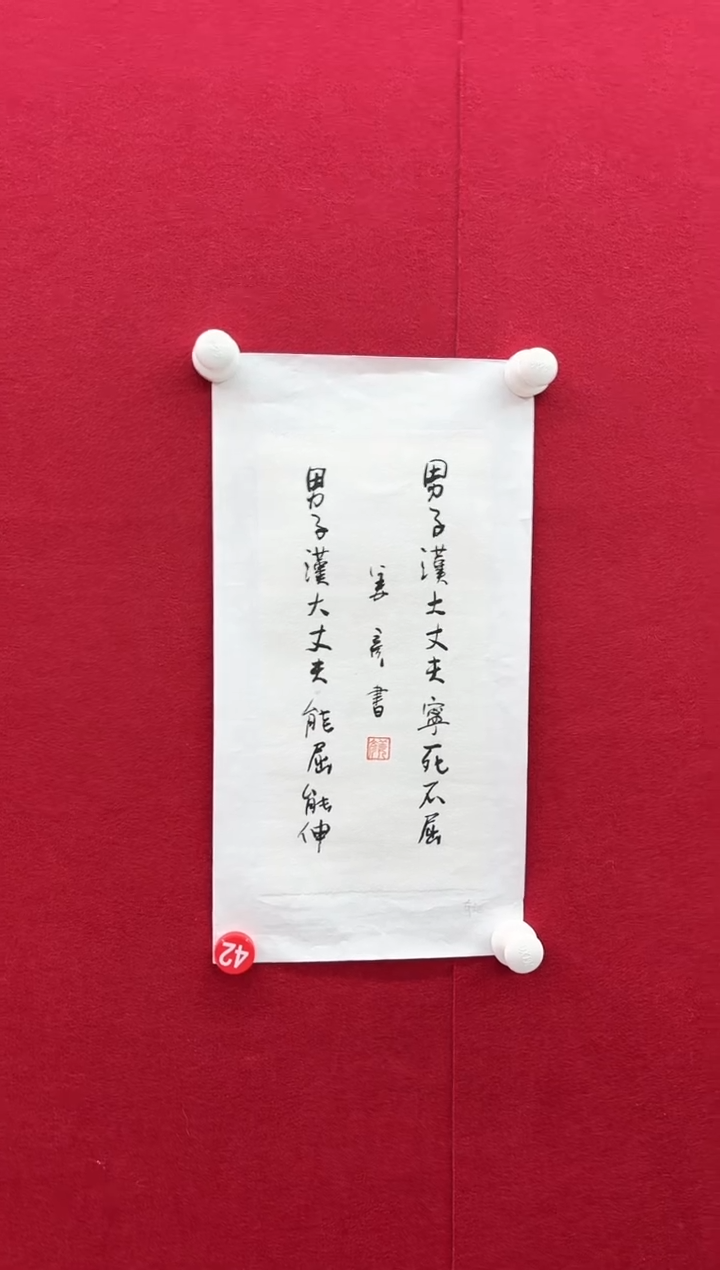 男子漢大丈夫寧死不屈
姜彥書
男子漢大丈夫能屈能伸
42